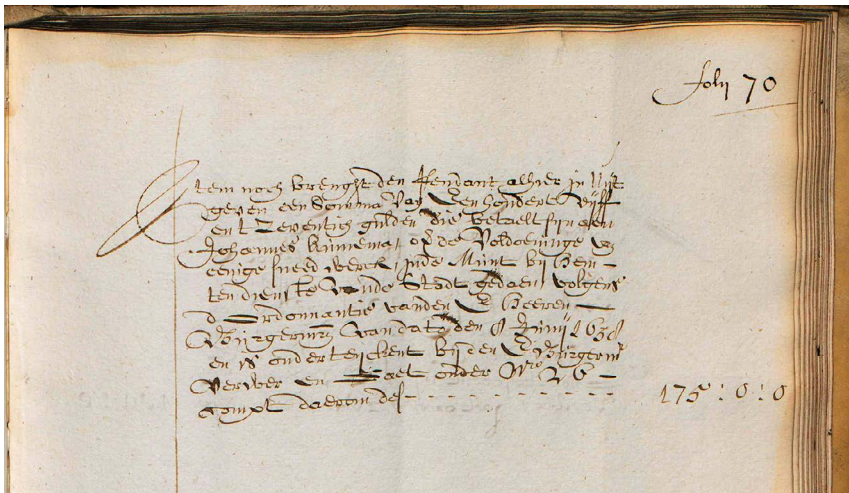 folij 70
Item noch brenght den Rendant alhier in uijt
geven een Somma van Een hondert vijff
en t Zeventich gulden die betaelt sijn aen
Johannes Kinnema op de Voldoeninge van
eenige sneed werck inde Munt bij hem
ten dienste vande Stadt gedaen volgens
d Ordonnantie vanden E Heeren
Burgermrs van dato den 8 Junij 1638
en is onderteijckent bij den E Burgermrs
Verwer en onder Nro 26
compt daerom des
175 : 0 : 0